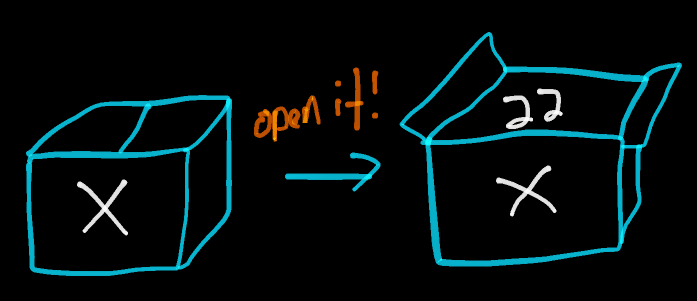 X
open it!
22
X